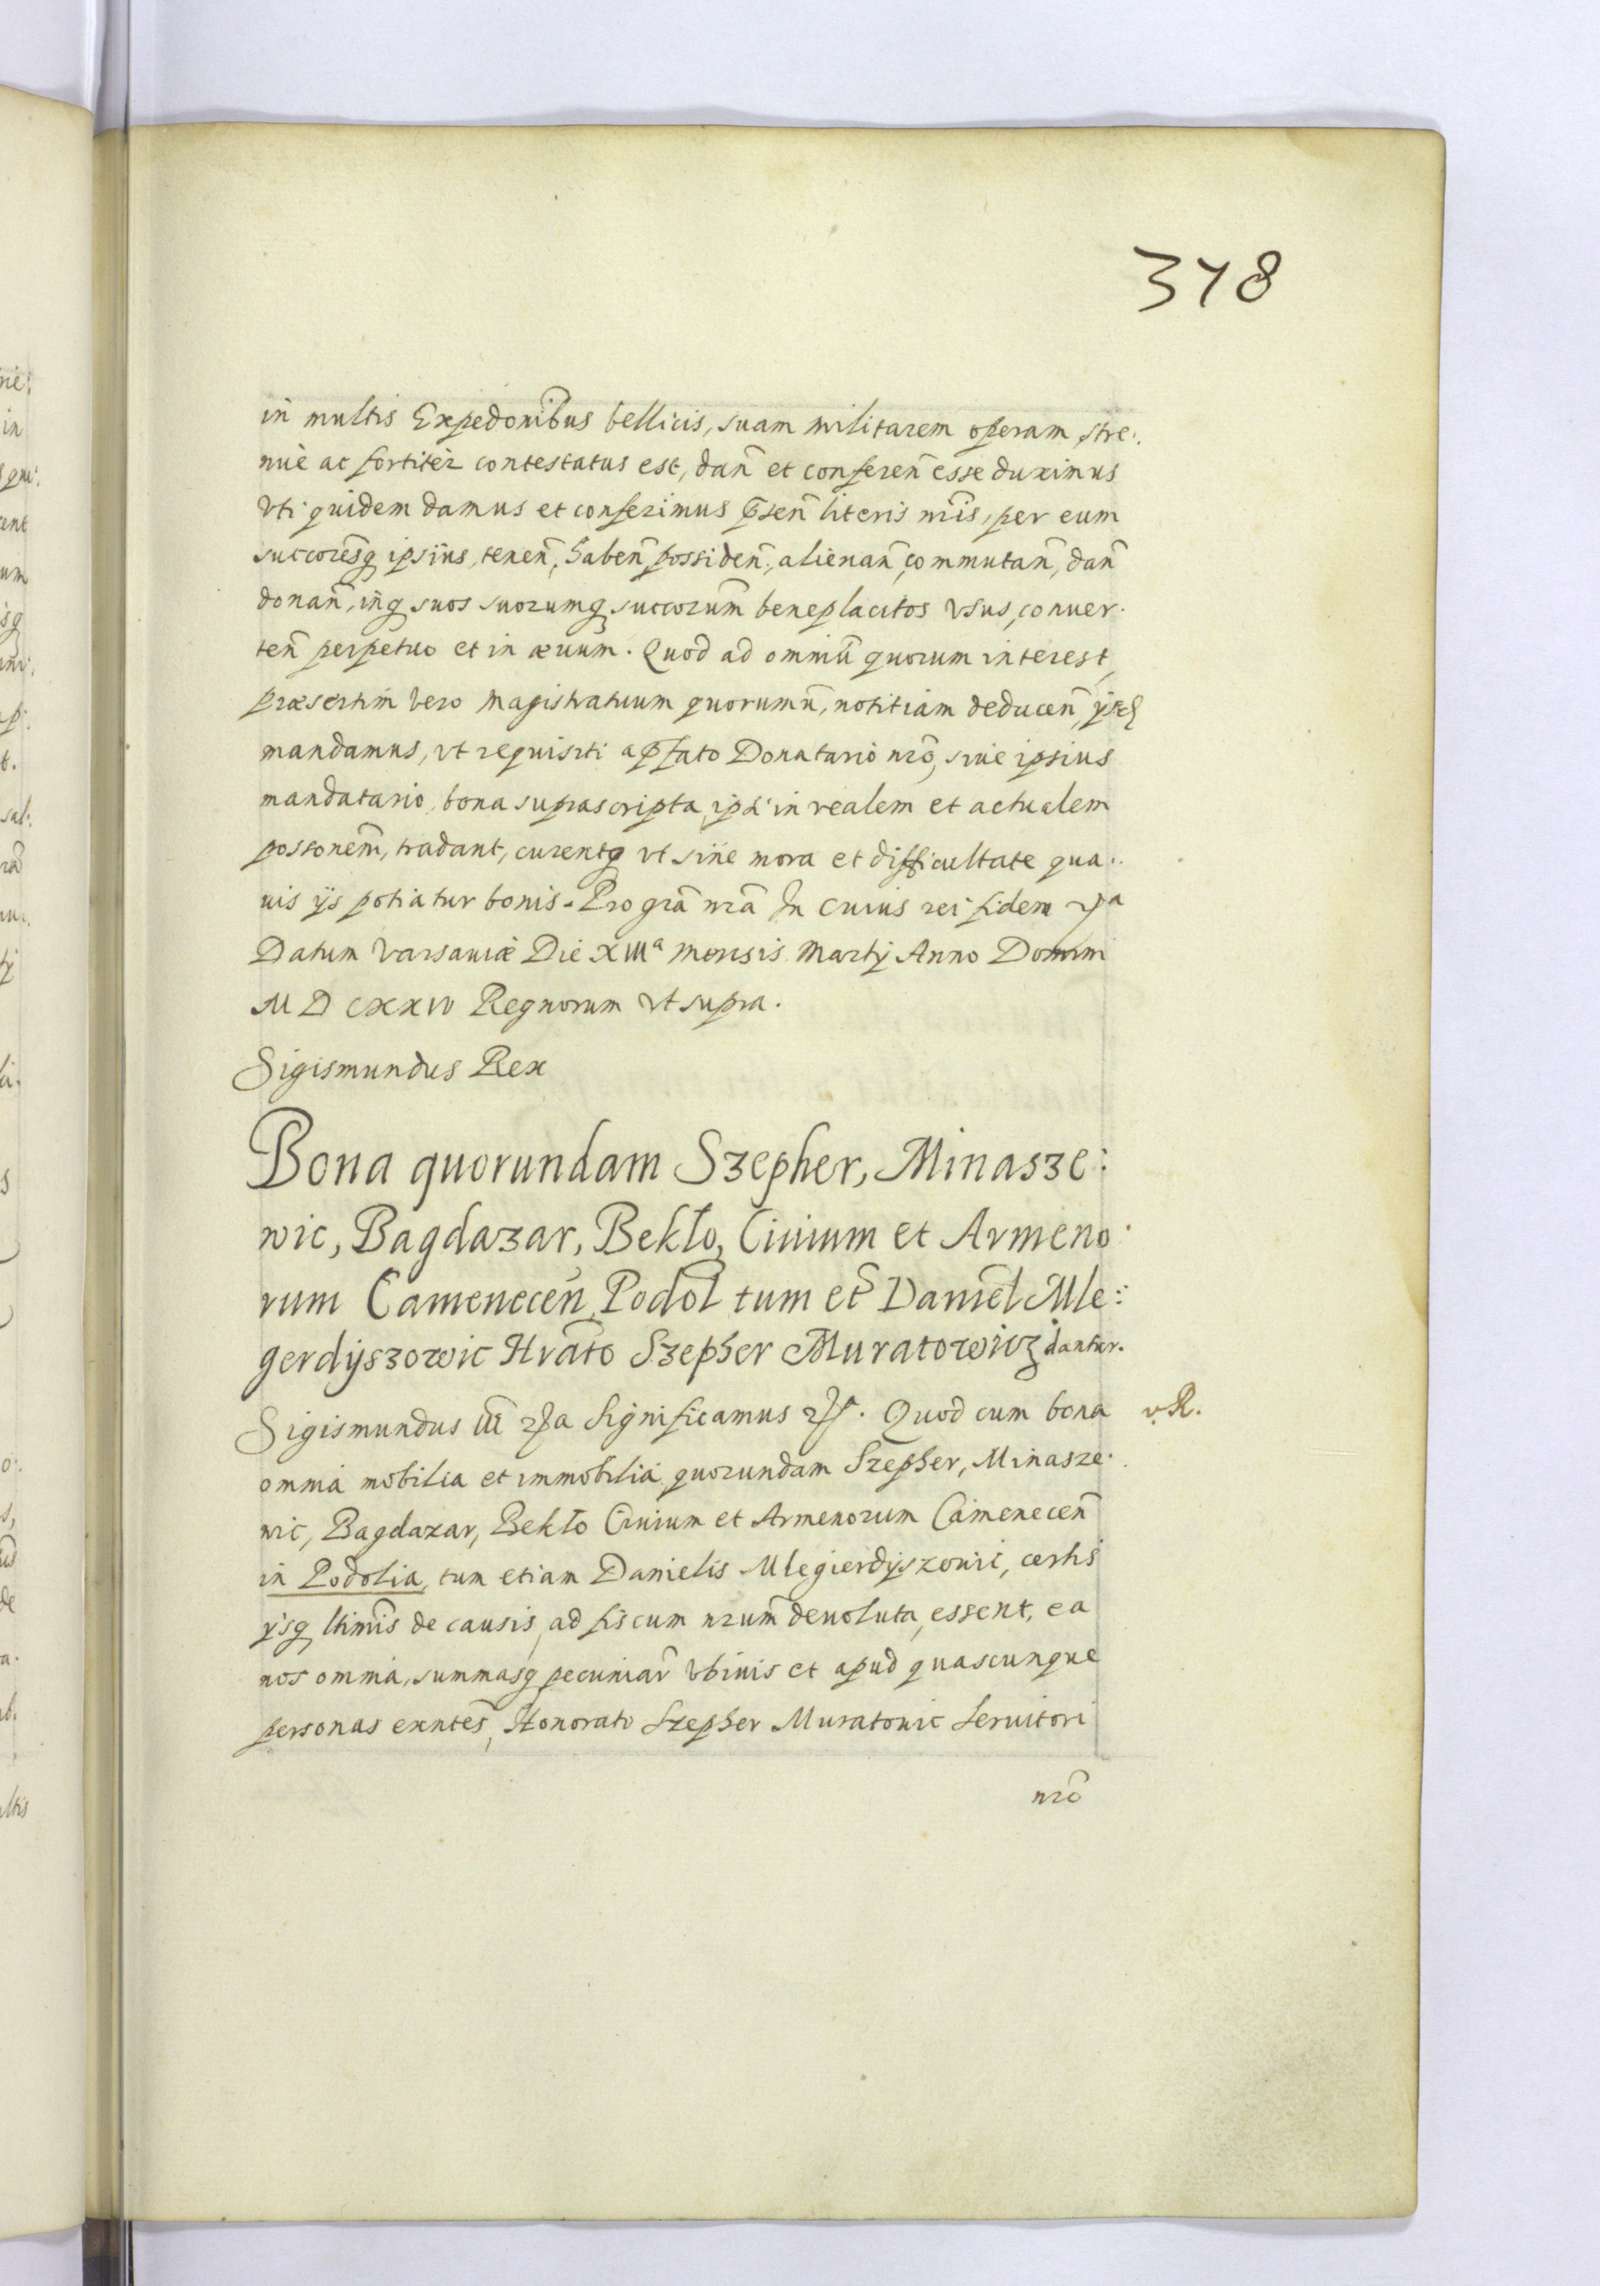 378
in multis Expedonibus bellicis, suam militarem operam stre:
nuè ac fortiter contestatus est, dan̄ et conferen̄ esse duximus
vti quidem damus et conferimus p̄sen̄ literis nr̄is, per eum
succoresq̨ ipsius, tenen̄, haben̄, possiden̄, alienan̄, commutan̄, dan̄
donan̄, inq̨ suos suorumq̨ succorum̄ beneplacitos vsus, conuer:
ten̄ perpetuo et in æuum. Quod ad omniū quorum interest,
præsertim vero Magistratuum quorumū, notitiam deducen̄,
mandamus, vt requisiti a p̄fato Donatario nr̄o, siue ipsius
mandatario, bona suprascripta, ipsi in realem et actualem
possonem̄, tradant, curentq̨ vt sine mora et difficultate qua:
uis ijs potiatur bonis. Pro gr̄a nr̄a In cuius rei fidem
Datum Varsauiæ Die XIII a Mensis Martij Anno Domini
M D CXXIV Regnorum vt supra.
Sigismundus Rex
Bona quorundam Szepher, Minasze:
wic, Bagdazar, Bekło, Ciuium et Armeno:
rum Camenecen̄ Podol tum et̄ Daniel̄ Mle:
gerdyszowic Hrāto Szepher Muratowicz dantur.
Sigismundus III Significamus Quod cum bona
v. R.
omnia mobilia et immobilia quorundam Szepher, Minasze:
wic, Bagdazar, Bekło Ciuium et Armenorum Camenecen̄
in Podolia, tum etiam Danielis Mlegierdyszowic, certis
ijsq̨ ltimis de causis, ad fiscum nr̄um deuoluta, essent, ea
nos omnia, summasq̨ pecuniar̄ vbiuis et apud quascunque
personas exntes̄, Honorato Szepher Muratowic Seruitori
nr̄o